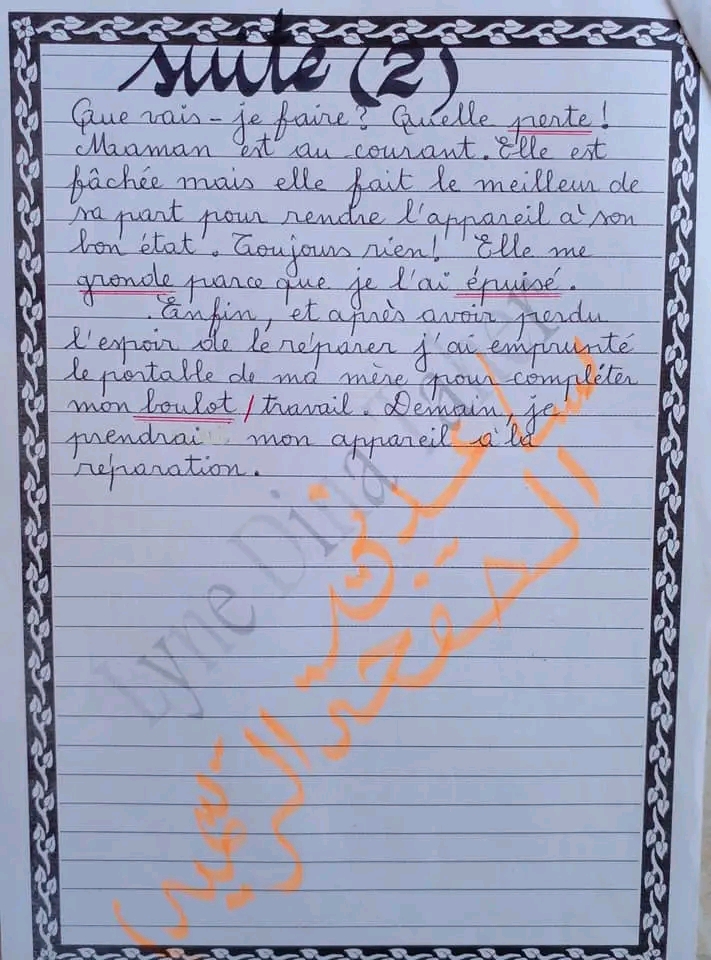 suite (2)
Que vais-je faire? Quelle perte!
Maaman est au courant. Elle est
fâchée mais elle fait le meilleur de
sa part pour rendre l'appareil à son
bon état. Toujours rien! Elle me
gronde parce que je l'ai épuisé.
Enfin, et après avoir perdu
l'espoir de le réparer j'ai emprunté
le portable de ma mère pour compléter
mon boulot / travail. Demain, je
prendrai mon appareil à la
réparation.
Lyne Dina
الصفحة الرسمية